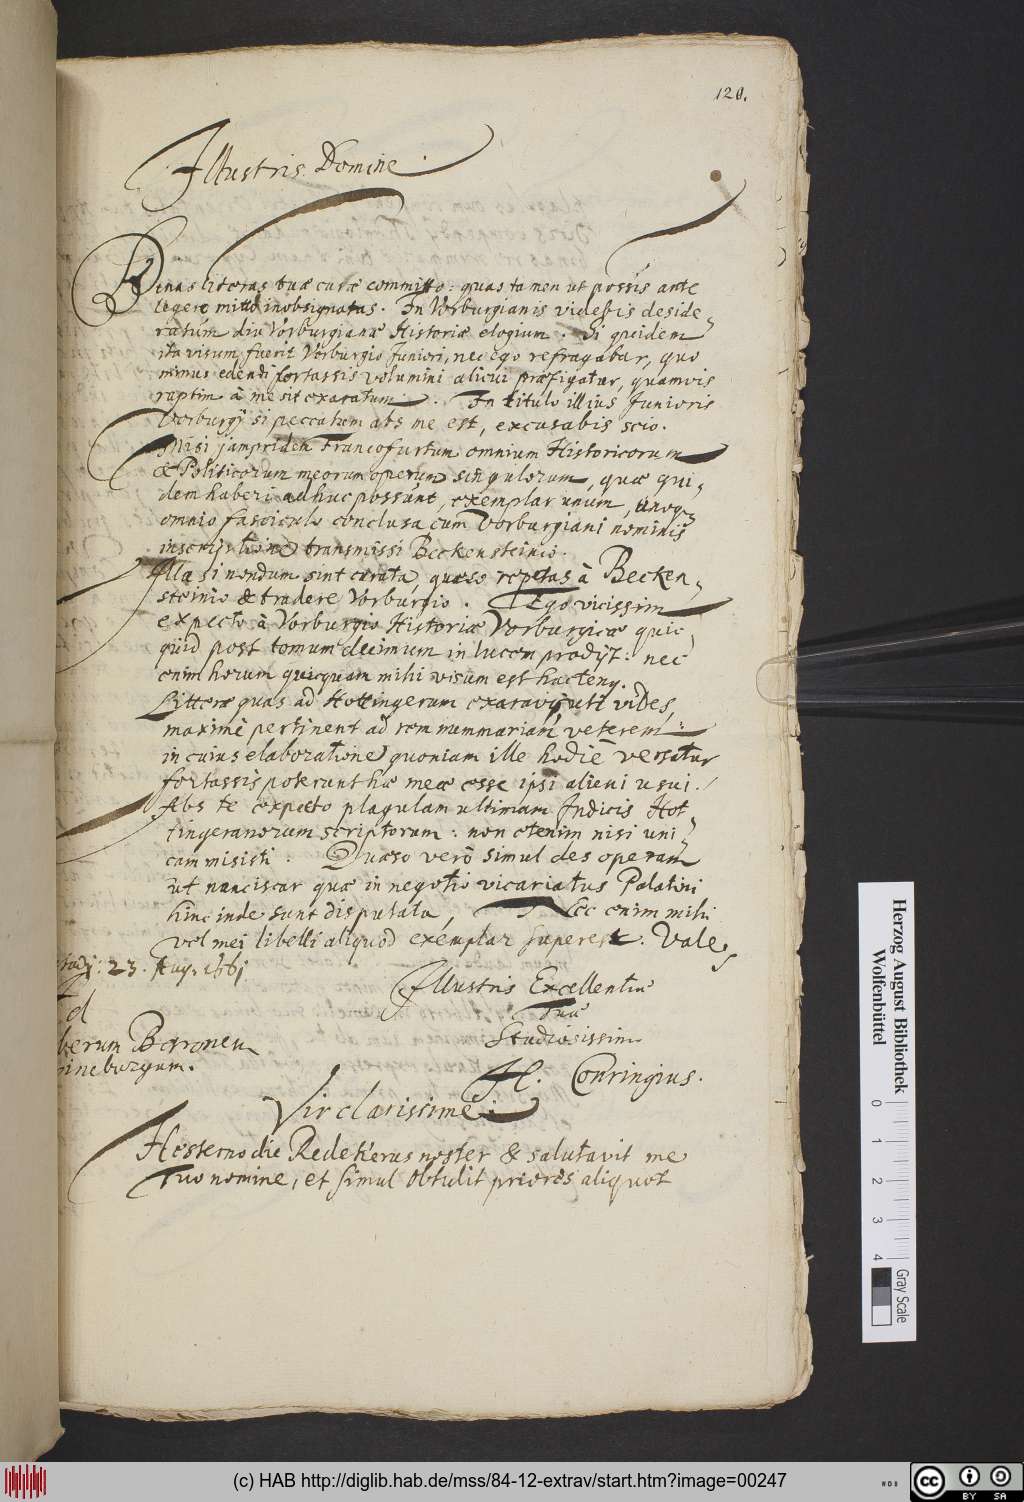 120.
Illustris Domine.
Binas literas tuæ curæ committo: quas tamen ut possis ante
legere mitto inobsignatas. In Vorburgianis videbis deside,
ratum diu Vorburgianæ Historiæ elogium. Si quidem
ita visum fuerit Vorburgio Juniori, nec ego refragabor, quo
minus edendi fortassis volumini alicui præfigatur, quamvis
raptim à me sit exaratum. In titulo illius Junioris
Vorburgij si peccatum abs me est, excusabis scio.
Misi jampridem Francofurtum omnium Historicorum
& Politicorum meorum operum singulorum, quæ qui,
dem haberi adhuc possunt, exemplar unum, unoq;
omnio fasciculo conclusa cum Vorburgiani nominis
inscriptione transmissi Beckensteinio.
Illa si nondum sint curata, quæso repetas à Becken,
steinio & tradere Vorburgio. Ego vicissim
expecto à Vorburgio Historiæ Vorburgicæ quic
quid post tomum decimum in lucem prodijt: nec
enim horum quicquam mihi visum est hactenq.
Litteræ quas ad Hottingerum exaravi, uti vides,
maximè pertinent ad rem nummariam veterem:
in cuius elaboratione quoniam ille hodiè versatur
fortassis poterunt hæ meæ esse ipsi alicui usui.
Abs te expecto plagulam ultimam Indicis Hot,
tingeranorum scriptorum: non etenim nisi uni,
cam misisti. Quæso verò simul des operam
ut nanciscar quæ in negotio vicariatus Palatini
hinc inde sunt disputata, Nec enim mihi
vel mei libelli aliquod exemplar superest. Vale
23. Aug. 1661
Illustris Excellentiæ
Tuæ
Studiosissim
H. Conringius.
berum Baronem
ineburgum.
Vir clarissime:
Hesterno die Redekerus noster & salutavit me
Tuo nomine, et simul obtulit priores aliquot
Herzog August Bibliothek
Wolfenbüttel
0 1 2 3 4
Gray Scale
(c) HAB http://diglib.hab.de/mss/84-12-extrav/start.htm?image=00247
cc BY SA